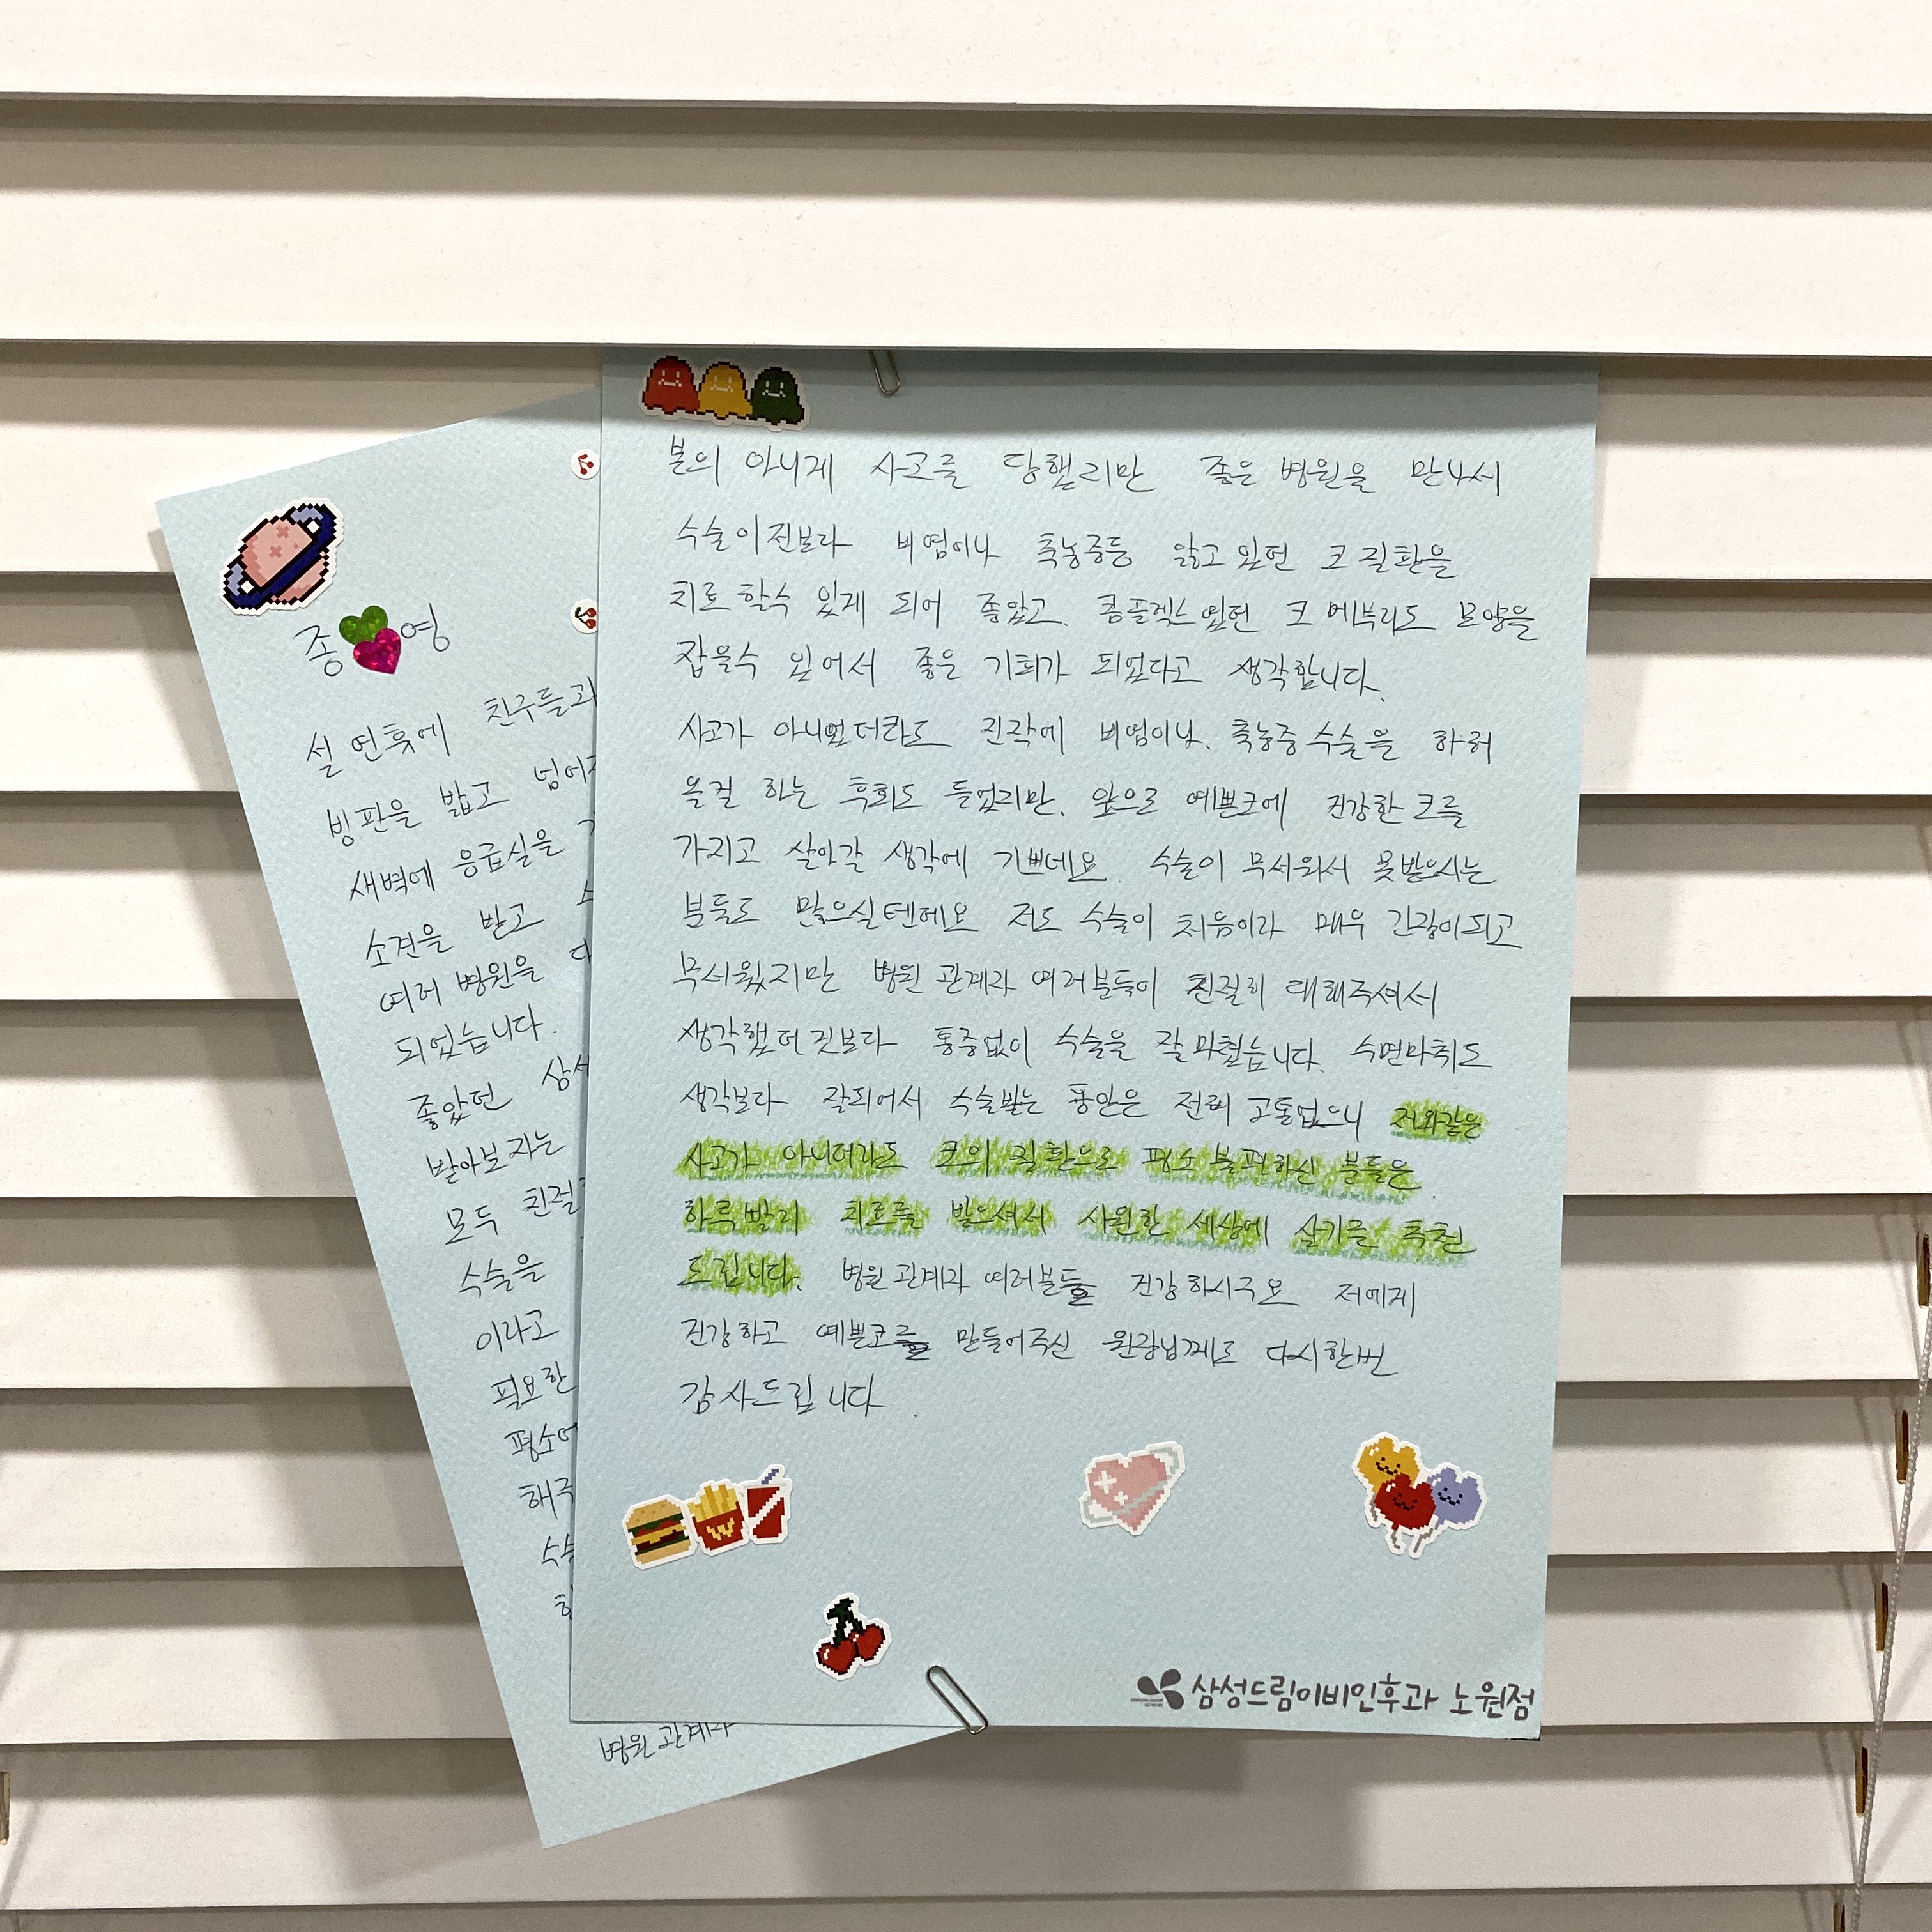 종 영
설 연휴에 친구들과
빙판을 밟고 넘어
새벽에 응급실을
소견을 받고
여러 병원을 다
되었습니다.
좋았던 삼성
받아보자는
모두 친절
수술을
이라고
필요한
평소에
해주
수술
병원 관계자
본의 아니게 사고를 당했지만 좋은 병원을 만나서
수술이전보다 비염이나 축농증등 앓고 있던 코 질환을
치료 할수 있게 되어 좋았고. 콤플렉스 였던 코 메부리도 모양을
잡을수 있어서 좋은 기회가 되었다고 생각합니다.
사고가 아니였더라도 진작에 비염이나. 축농증 수술을 하러
올걸 하는 후회도 들었지만. 앞으로 예쁜코에 건강한 코를
가지고 살아갈 생각에 기쁘네요. 수술이 무서워서 못받으시는
분들도 많으실텐데요 저도 수술이 처음이라 매우 긴장이되고
무서웠지만 병원 관계자 여러분들이 친절히 대해주셔서
생각했던것보다 통증없이 수술을 잘 마쳤습니다. 수면마취도
생각보다 잘되어서 수술받는 동안은 전혀 고통없으니 저와같은
사고가 아니더라도 코의 질환으로 평소 불편하신 분들은
하루 빨리 치료를 받으셔서 시원한 세상에 살기를 추천
드립니다. 병원 관계자 여러분들 건강하시구요 저에게
건강하고 예쁜코를 만들어주신 원장님께도 다시한번
감사드립니다.
삼성드림이비인후과 노원점